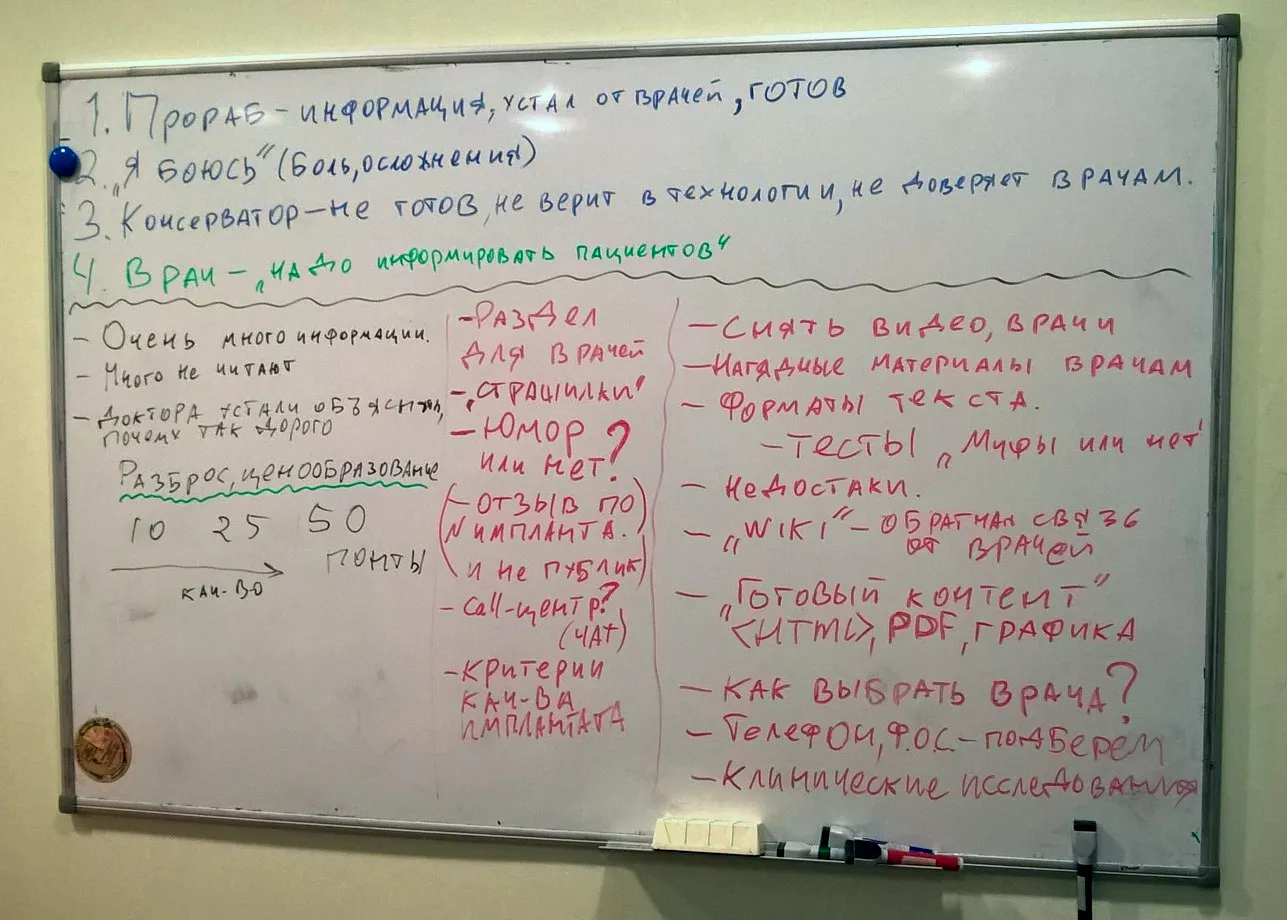 1. Прораб – информация, устал от врачей, готов
2. „Я боюсь" (боль, осложнения)
3. Консерватор – не готов, не верит в технологии, не доверяет врачам.
4. Врач – „надо информировать пациентов"
- Очень много информации.
- Много не читают
- Доктора устали объяснять,
почему так дорого
Разброс, ценообразование
10 25 50
понты
кач-во
- Раздел
для врачей
- „страшилки"
- Юмор
или нет?
(- отзыв по
N импланта.
и не публик)
- Call-центр?
(чат)
- критерии
кач-ва
имплантата
- Снять видео, врачи
- Нагядные материалы врачам
- Форматы текста.
- тесты „Мифы или нет"
- Недостаки.
- „WIKI" - обратная связь
от врачей
- „Готовый контент"
<HTML>, PDF, графика
- как выбрать врача?
- Телефон, ф.о.с. - подберем
- Клинические исследования